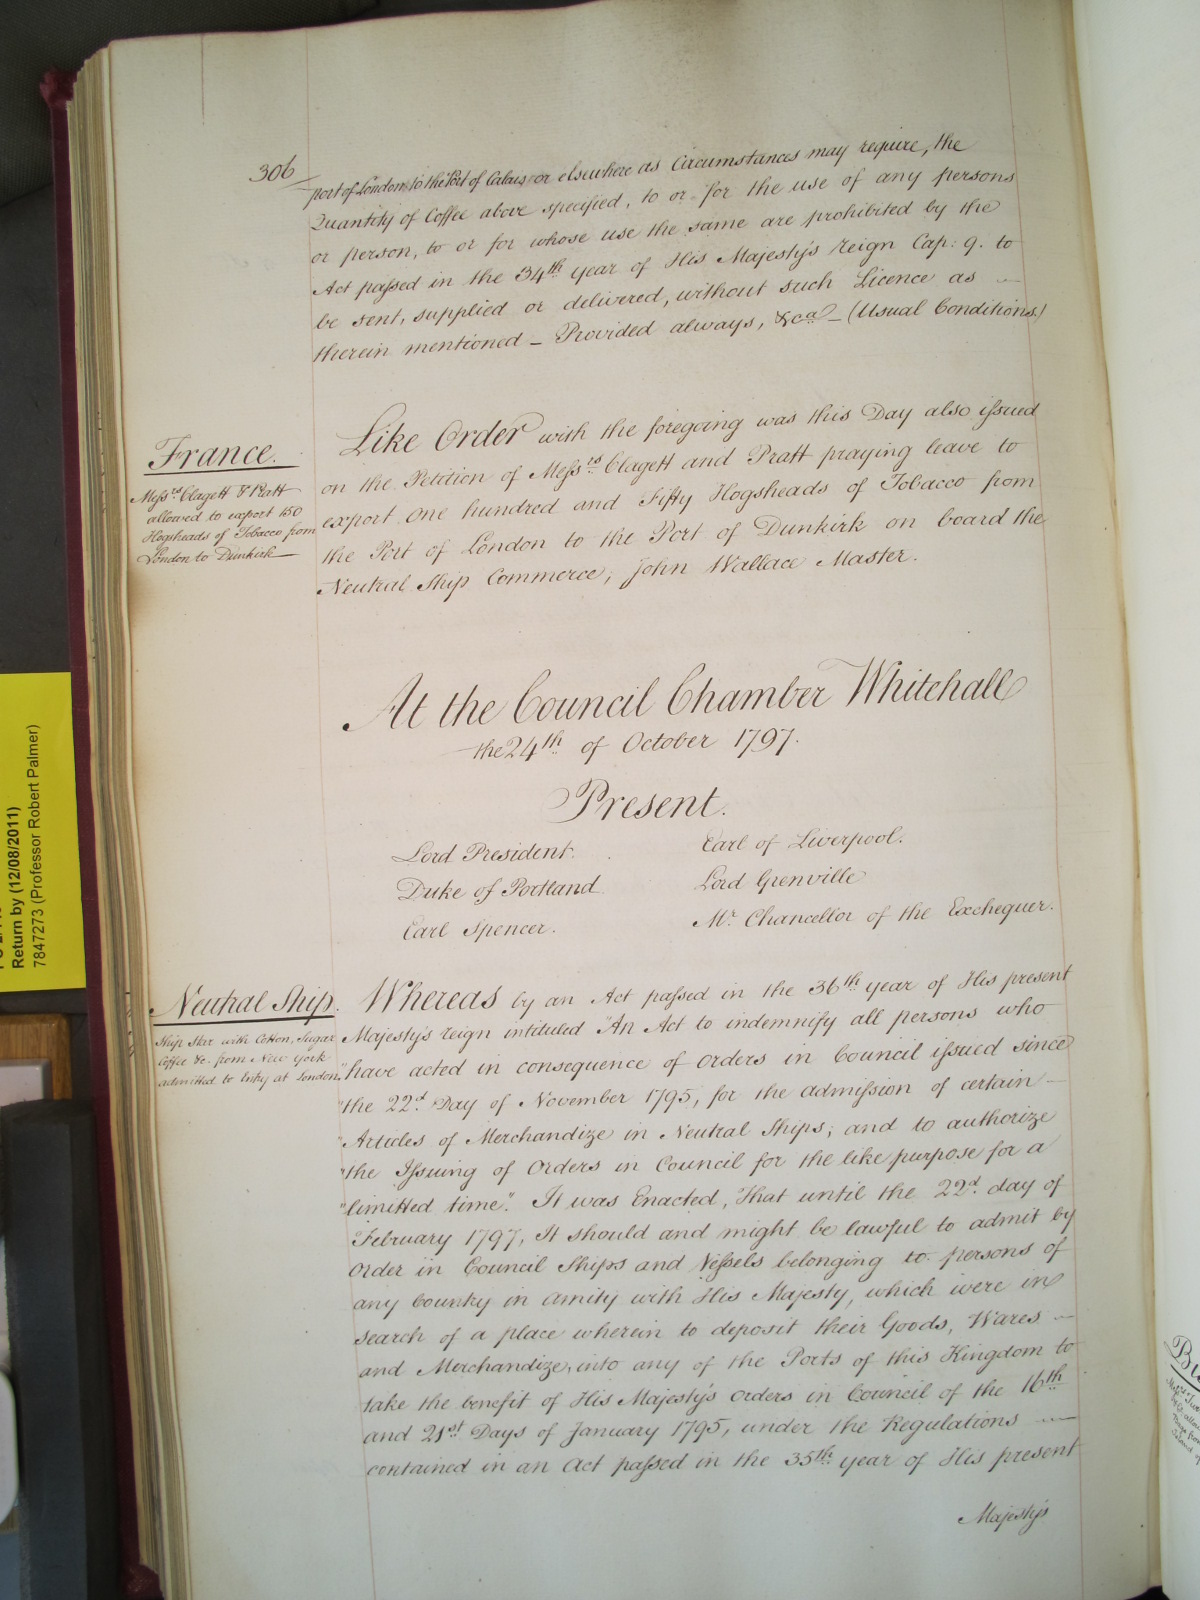 306
port of London to the Port of Calais or elsewhere as Circumstances may require, the
Quantity of Coffee above specified, to or for the use of any persons
or person, to or for whose use the same are prohibited by the
Act passed in the 34th year of His Majesty's reign Cap: 9. to
be sent, supplied or delivered, without such Licence as
therein mentioned - Provided always, &ca - (Usual Conditions)
France.
Messrs Clagett & Pratt
allowed to export 150
Hogsheads of Tobacco from
London to Dunkirk
Like Order with the foregoing was this Day also issued
on the Petition of Messrs Clagett and Pratt praying leave to
export one hundred and Fifty Hogsheads of Tobacco from
the Port of London to the Port of Dunkirk on board the
Neutral Ship Commerce, John Wallace Master.
At the Council Chamber Whitehall
the 24th of October 1797.
Present.
Lord President.
Earl of Liverpool.
Duke of Portland
Lord Grenville
Earl Spencer.
Mr. Chancellor of the Exchequer.
Neutral Ship.
Ship Star with Cotton, Sugar
Coffee &c. from New York
admitted to Entry at London.
Whereas by an Act passed in the 36th year of His present
Majesty's reign intituled "An Act to indemnify all persons who
"have acted in consequence of Orders in Council issued since
"the 22d. Day of November 1795, for the admission of certain
"Articles of Merchandize in Neutral Ships; and to authorize
"the Issuing of Orders in Council for the like purpose for a
"limitted time". It was Enacted, That until the 22d. day of
February 1797, It should and might be lawful to admit by
Order in Council Ships and Vessels belonging to persons of
any Country in Amity with His Majesty, which were in
search of a place wherein to deposit their Goods, Wares
and Merchandize, into any of the Ports of this Kingdom to
take the benefit of His Majesty's Orders in Council of the 16th
and 21st Days of January 1795, under the Regulations
contained in an Act passed in the 35th year of His present
Majesty's
Return by (12/08/2011)
7847273 (Professor Robert Palmer)